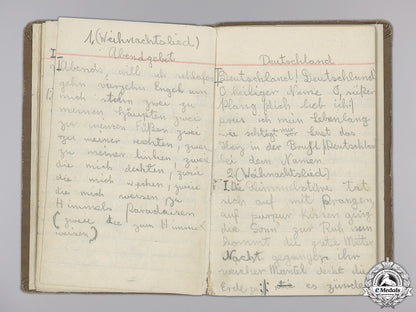 1, (Weihnachtslied)
Abendgebet
Abends, will ich schlafen
gehn vierzehn Engel um
mich stehn zwei zu
meinen Häupten zwei
zu meinen Füßen zwei
zu meiner rechten, zwei
zu meiner linken, zwei
die mich decken, zwei
die mich wecken, zwei
die mich weisen zu
Himmels Paradeisen
(zwei die zum Himmel
weisen)
Deutschland
I. Deutschland! Deutschland
O heiliger Name O süßer
Klang dich lieb ich
preis ich mein Lebenlang
wie schlägt mir laut das
Herz in der Brust Deutschland
bei dem Namen
2, (Weihnachtslied)
I. Die Himmelstüre tat
sich auf mit Prangen,
auf purpur Kissen ging
die Sonn zur Ruh nun
kommt die gute Mutter
Nacht gegangen ihr
weicher Mantel deckt die
Erde zu es
eMedals